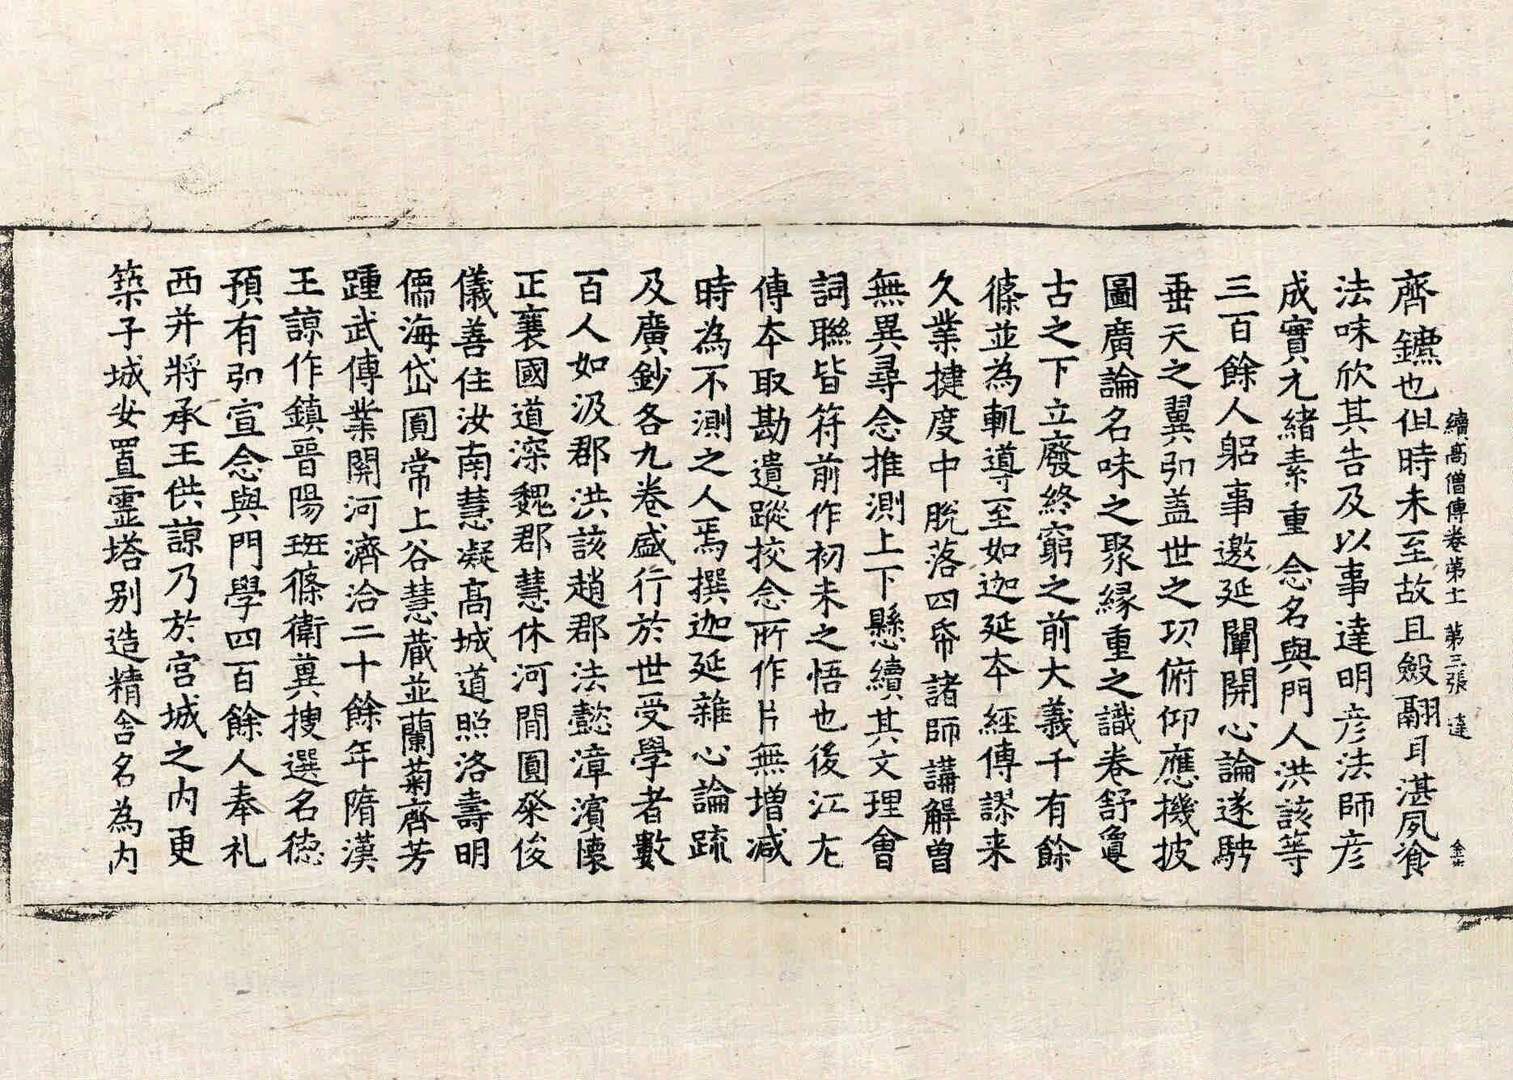 續高僧傳卷第十一 第三張 達
齊鑣也但時未至故且斂翮耳湛夙飡
法味欣其告及以事達明彦法師彦
成實元緒素重念名與門人洪該等
三百餘人躬事邀延闡開心論遂騁
垂天之翼引蓋世之功俯仰應機披
圖廣論名味之聚緣重之識卷舒復
古之下立廢終窮之前大義千有餘
條並為軌導至如迦延本經傳謬来
久業揵度中脫落四㡧諸師講解曽
無異尋念推測上下懸續其文理會
詞聯皆符前作初未之悟也後江左
傳本取勘遺蹤校念所作片無增减
時為不測之人焉撰迦延雜心論疏
及廣鈔各九卷盛行於世受學者數
百人如汲郡洪該趙郡法懿漳濱懷
正襄國道深魏郡慧休河間圓粲俊
儀善住汝南慧凝高城道照洛壽明
儒海岱圓常上谷慧藏並蘭菊齊芳
踵武傳業關河濟洽二十餘年隋漢
王諒作鎮晉陽班條衛兾搜選名德
預有引宣念與門學四百餘人奉礼
西并將承王供諒乃於宫城之内更
築子城安置靈塔别造精舍名為内